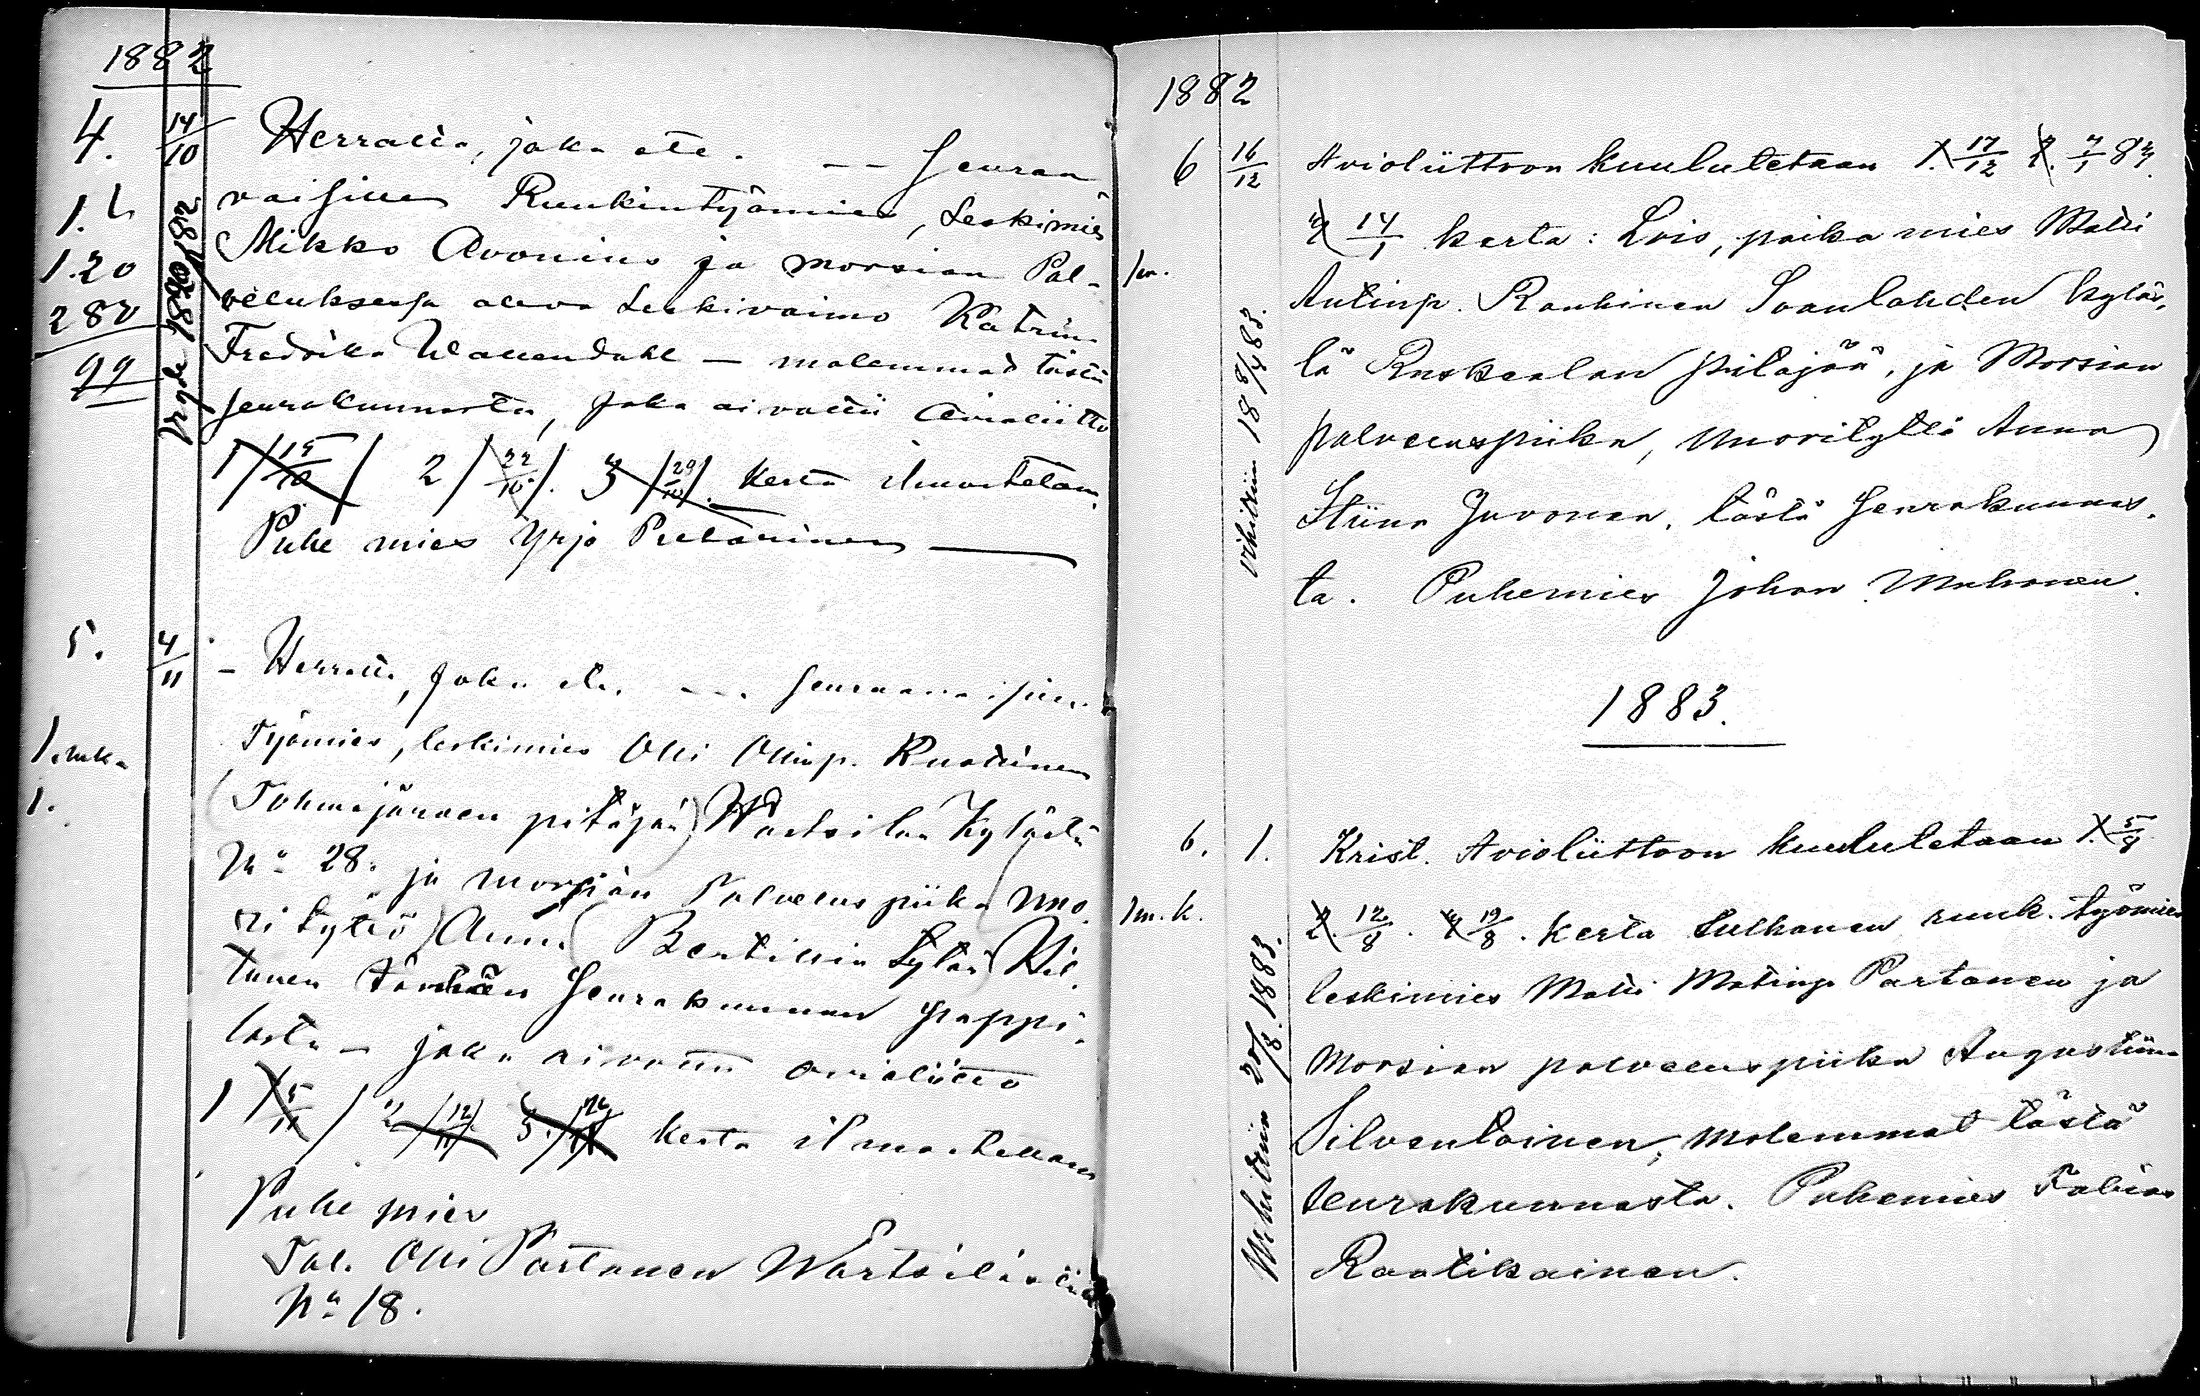 1882
4. 14/10 Herralle, joka etc. — — Seuraa-
vaisille Ruukintyömies, Leskimies
Mikko Avonius ja morsian Pal-
veluksessa oleva Leskivaimo Katrin
Fredrika — molemmad tästä
seurakunnasta, joka aivottu Avioliitto
1 /15/10/ 2 /22/10/. 3 /29/10/. kerta ilmoitetaan
Puhe mies Yrjö Pulkinen
1.
1.20
280
99
5. 4/11 - Herralle, joka etc. - - . seuraavaisille
Työmies, leskimies Olli Ollinp.
(Tohmajärven pitäjän) Wärtsilän Kylästä
No 28. ja morsian Palveluspiika nuo-
ri tyttö Anna (Bertillin tytär)
tämän Seurakunnan pappi-
lasta - joka aivottu avioliitto
1 /5/11/ 2 /12/11/ 3. / kerta ilmoitetaan
Puhe mies
Tal. Olli Partanen Wärtsilästä
No 18.
1.mka
1.
1882
6 16/12 Avioliittoon kuulutetaan 1. 17/12 2. 7/1 83.
3 14/1 kerta: Lois, poika mies Matti
1m.
Antinp. Ronkinen Soanlahden kyläs-
tä Ruskealan pitäjää, ja Morsian
palveluspiika, nuorityttö Anna
Stiina Juvonen, tästä seurakunnas-
ta. Puhemies Johan Muhonen.
vihittiin 18 8/4 83.
1883.
6. 1. Krist. Avioliittoon kuulutetaan 1. 5/8
1m.k.
2. 12/8. 3 19/8. kerta Sulhanen ruuk. työmies
leskimies Matti Matinp Partanen ja
Morsian palveluspiika Agustiina
Silventoinen, molemmat tästä
seurakunnasta. Puhemies Fabian
Raatikainen.
Wihittiin 20/8. 1883.